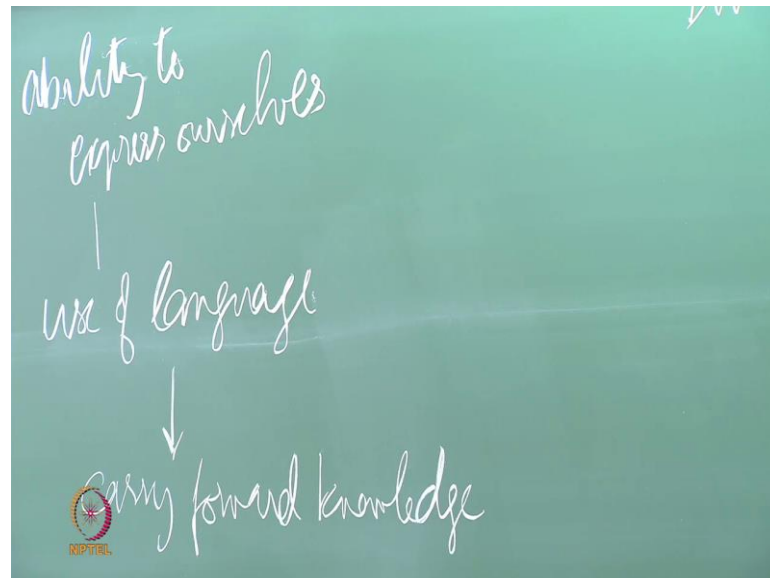 ability to
express ourselves
use of language
carry forward knowledge
NPTEL